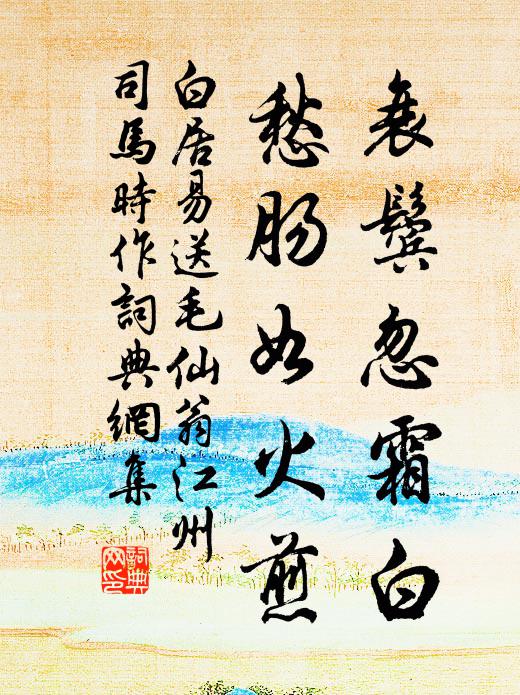 衰鬓忽霜白
愁肠如火煎
白居易送毛仙翁江州
司馬時作詞典網集
詞典
网印